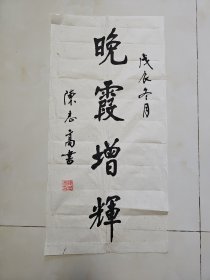 戊辰冬月
晚霞增輝
陳志高書